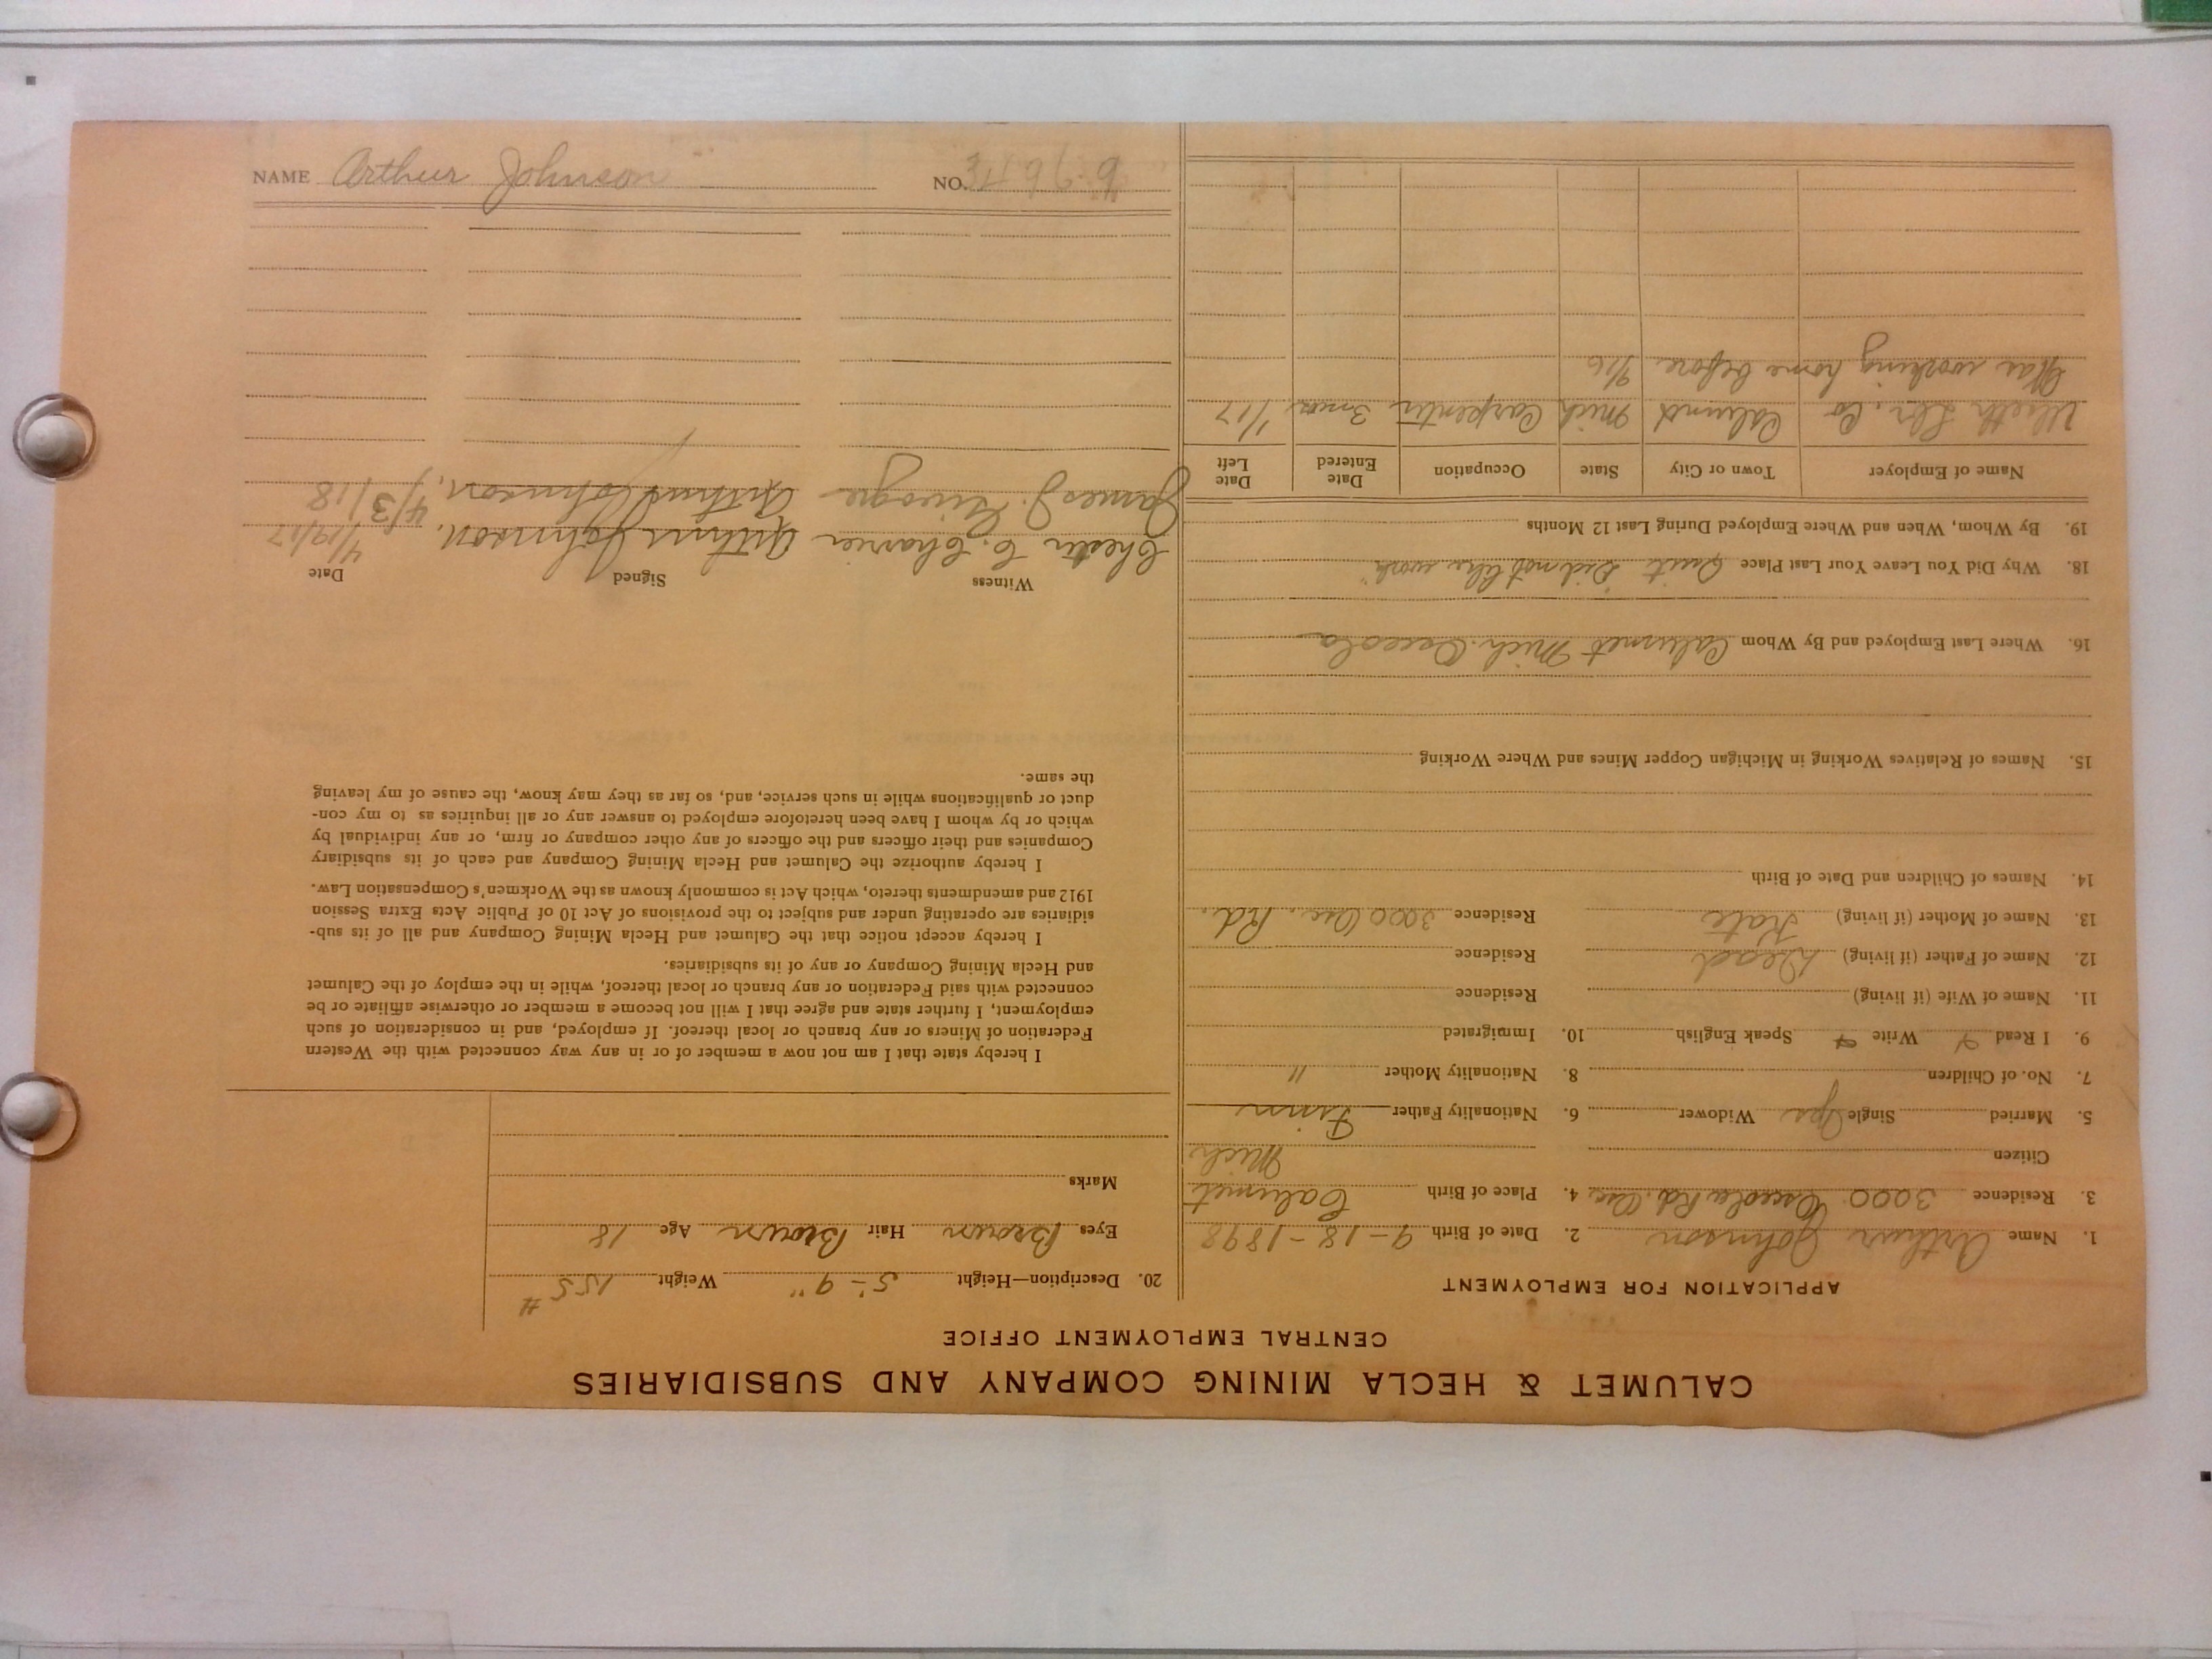 NAME Arthur Johnson NO.
CALUMET & HECLA MINING COMPANY AND SUBSIDIARIES
CENTRAL EMPLOYMENT OFFICE
APPLICATION FOR EMPLOYMENT
1. Name Arthur Johnson 2. Date of Birth 9-18-1898
3. Residence 3000 Osceola Rd. Osc. 4. Place of Birth Calumet
Citizen Mich
5. Married Single Yes Widower 6. Nationality Father Finn
7. No. of Children 8. Nationality Mother "
9. I Read Y Write Y Speak English 10. Immigrated
11. Name of Wife (if living) Residence
12. Name of Father (if living) Dead Residence
13. Name of Mother (if living) Kate Residence 3000 Osc. Rd.
14. Names of Children and Date of Birth
15. Names of Relatives Working in Michigan Copper Mines and Where Working
16. Where Last Employed and By Whom Calumet Mich. Osceola
18. Why Did You Leave Your Last Place Quit Did not like work
19. By Whom, When and Where Employed During Last 12 Months
Name of Employer Town or City State Occupation Date Entered Date Left
Co Calumet Mich Carpenter 3 mos 1/17
Was working home before 9/16
20. Description—Height 5'-9" Weight 155#
Eyes Brown Hair Brown Age 18
Marks
I hereby state that I am not now a member of or in any way connected with the Western
Federation of Miners or any branch or local thereof. If employed, and in consideration of such
employment, I further state and agree that I will not become a member or otherwise affiliate or be
connected with said Federation or any branch or local thereof, while in the employ of the Calumet
and Hecla Mining Company or any of its subsidiaries.
I hereby accept notice that the Calumet and Hecla Mining Company and all of its sub-
sidiaries are operating under and subject to the provisions of Act 10 of Public Acts Extra Session
1912 and amendments thereto, which Act is commonly known as the Workmen's Compensation Law.
I hereby authorize the Calumet and Hecla Mining Company and each of its subsidiary
Companies and their officers and the officers of any other company or firm, or any individual by
which or by whom I have been heretofore employed to answer any or all inquiries as to my con-
duct or qualifications while in such service, and, so far as they may know, the cause of my leaving
the same.
Witness Signed Date
Chester C. Arthur Johnson. 4/19/17
James J. Arthur Johnson. 4/3/18